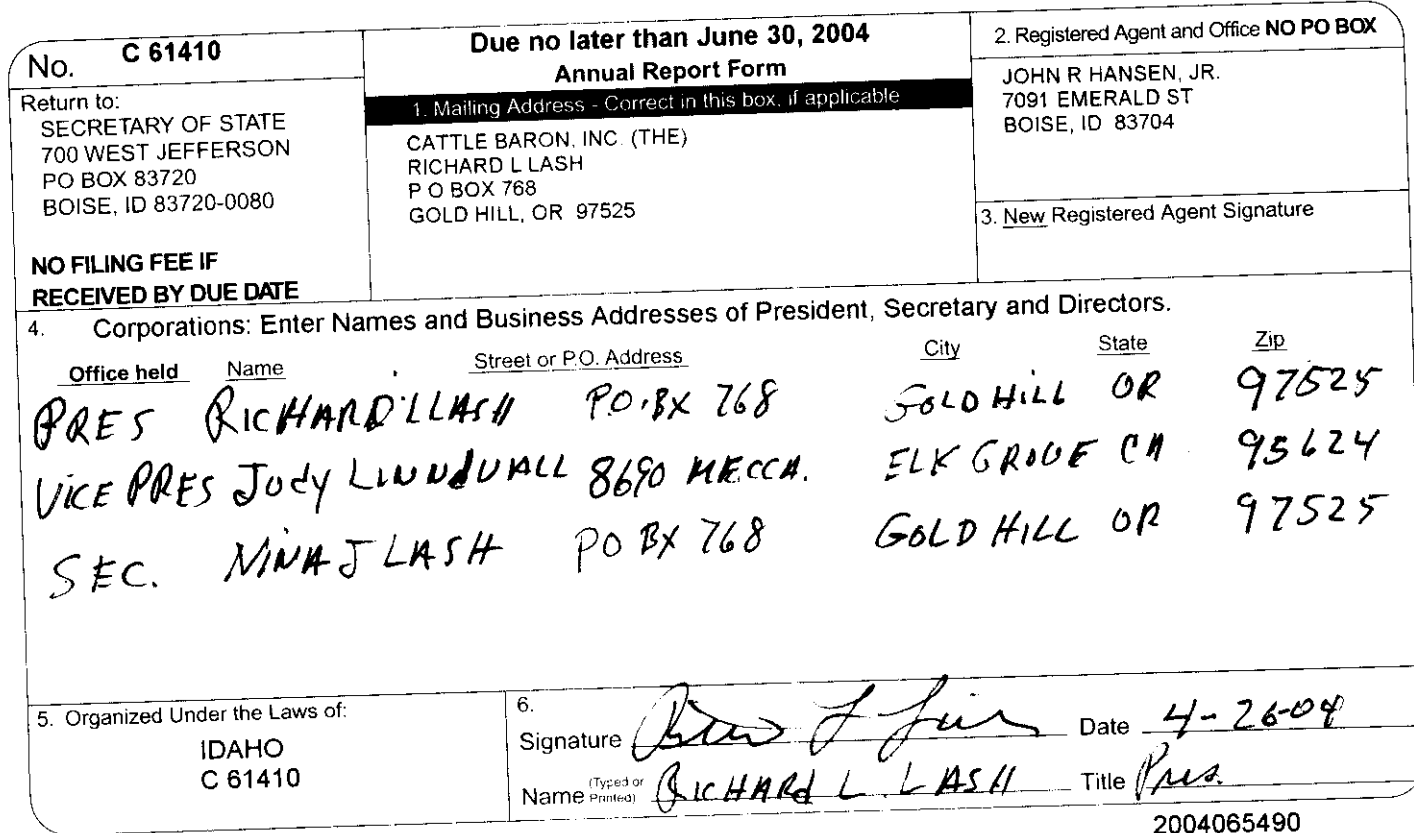 No. C 61410
Return to:
SECRETARY OF STATE
700 WEST JEFFERSON
PO BOX 83720
BOISE, ID 83720-0080
NO FILING FEE IF
RECEIVED BY DUE DATE
Due no later than June 30, 2004
Annual Report Form
1. Mailing Address - Correct in this box, if applicable
CATTLE BARON, INC. (THE)
RICHARD L LASH
P O BOX 768
GOLD HILL, OR 97525
2. Registered Agent and Office NO PO BOX
JOHN R HANSEN, JR.
7091 EMERALD ST
BOISE, ID 83704
3. New Registered Agent Signature
4. Corporations: Enter Names and Business Addresses of President, Secretary and Directors.
Office held Name Street or P.O. Address City State Zip
PRES RICHARD L LASH P.O. BX 768 GOLD HILL OR 97525
VICE PRES JUDY 8690 MECCA. ELK GROVE CA 95624
SEC. NINA J LASH PO BX 768 GOLD HILL OR 97525
5. Organized Under the Laws of:
IDAHO
C 61410
6.
Signature Date 4-26-04
Name (Typed or Printed) RICHARD L. LASH Title Pres.
2004065490